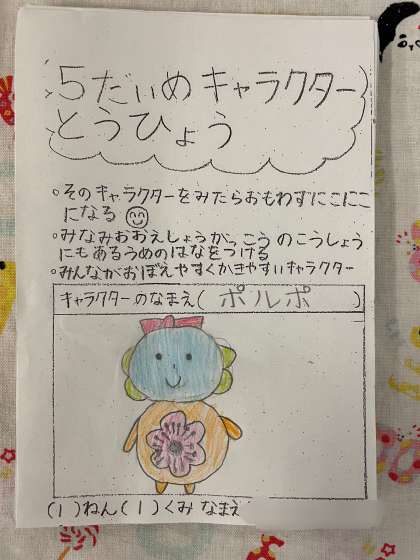 5だいめキャラクター
とうひょう
○そのキャラクターをみたらおもわずにこにこ
になる
○みなみおおえしょうがっこうのこうしょう
にもあるうめのはなをつける
○みんながおぼえやすくかきやすいキャラクター
キャラクターのなまえ(ポルポ)
(1)ねん(1)くみ なまえ